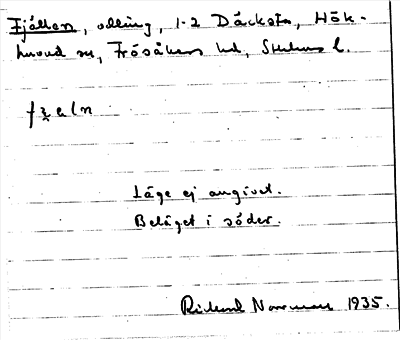 Fjällen, odling, 1-2 Däcksta, Hök-
huvud sn, Frösåkers hd, Sthlms l.
Läge ej angivet.
Beläget i söder.
Rickard Norrman 1935.